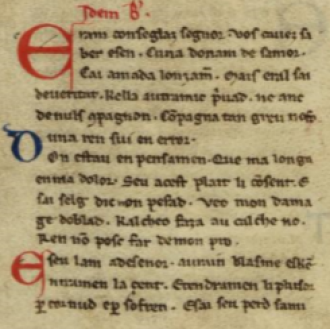 Idem B̕.
Eram conseglaz segnor. Vos cauez sa
ber esen. Cuna donam de samor.
Cai amada lonzam̄. Mais eral sai
deueritat. Kella autramic p̃uad. ne anc
de nuls 9pagnon. C9pagna tan greu nof̃
una ren sui en error.
On estau en pensamen. Que ma longu
enma dolor. Seu acest plait li 9sent. E
sai selg̃ dic mon pesad. Veo mon dama
ge doblad. Kal cheo faza au cal che no.
Ren nō posc far de mon pro.
E seu lam adesenor. aurain blasme
niramen la gent. Eten dramen li pluſor
ꝑ cornud e ꝑ sofren. E sai seu perd samt